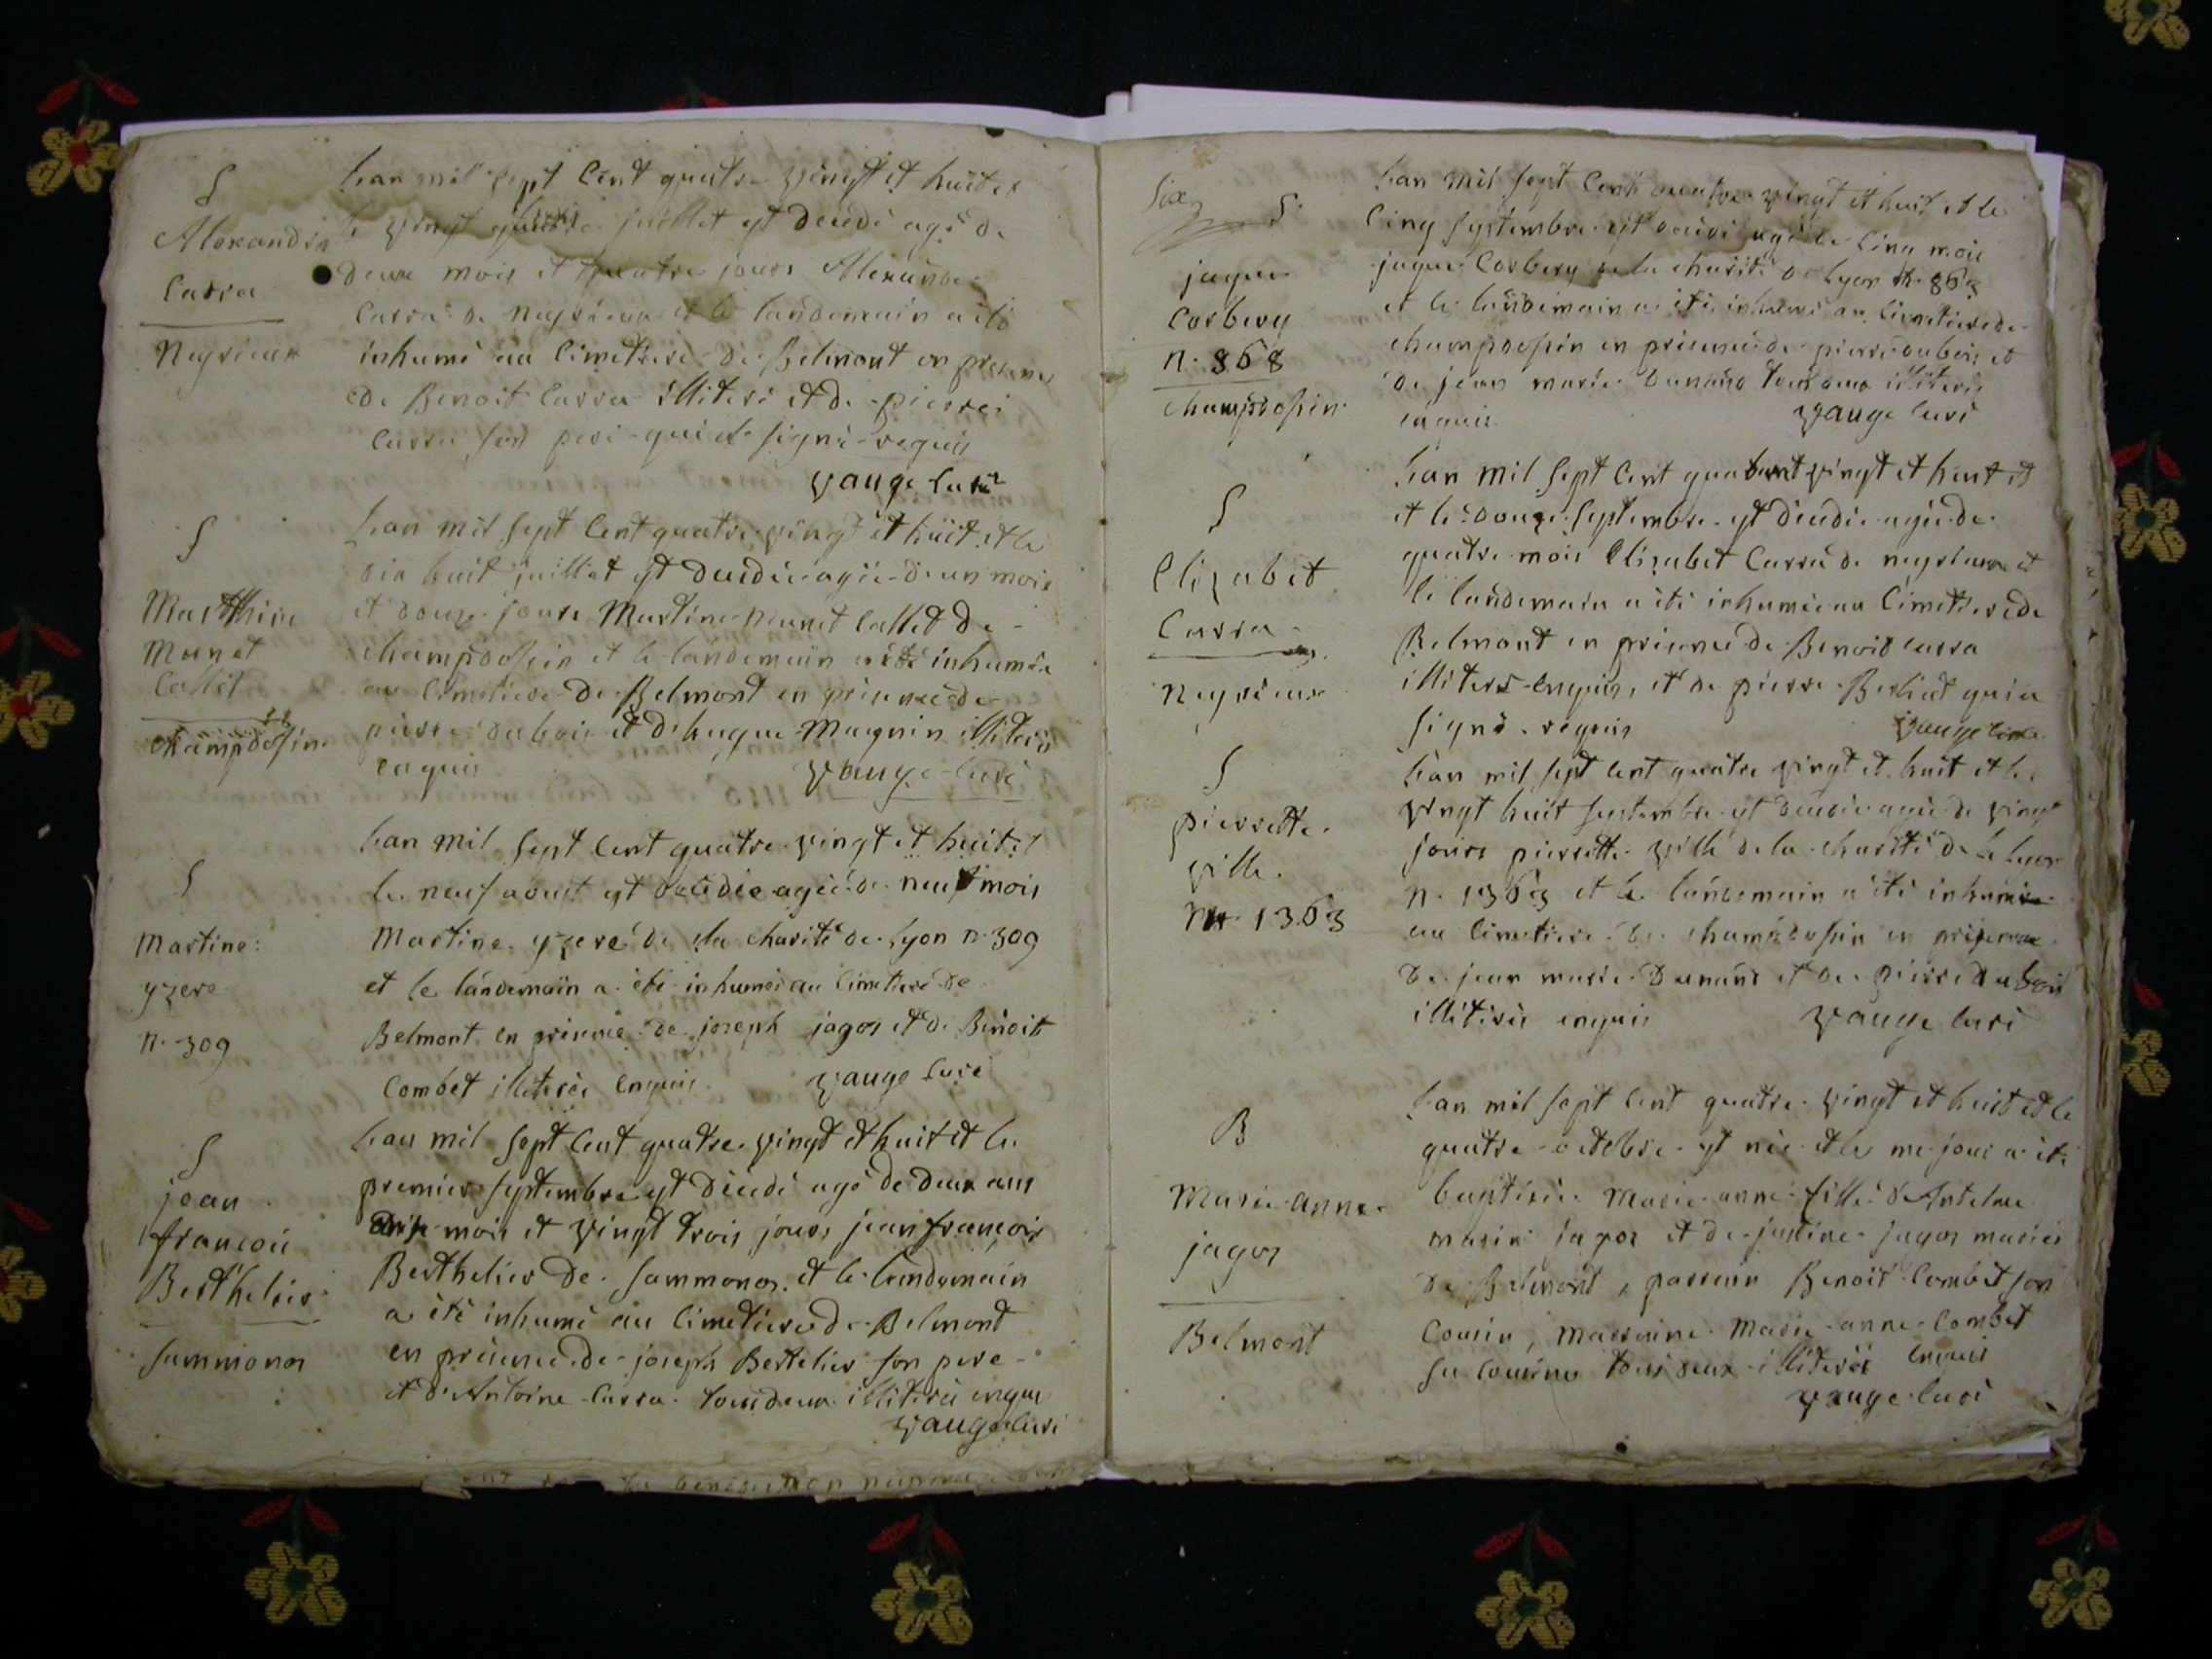 S
Alexandre
Carra
Neyrieux
Lan mil sept Cent quatre vingt et huit et
le vingt juillet est decedé agé de
deux mois et quatre jours Alexandre
Carra de neyrieux et le landemain a eté
inhumé au Cimetiere de Belmont en presence
de Benoit Carra illiteré et de pierre
Carra son pere qui et signé requis
vauge Curé
S
Marthine
Manet
Collet
champdossin
Lan mil sept Cent quatre vingt et huit et le
dix huit juillet est decedée agée de un mois
et douze jours Martine manet Collet de
champdossin et le landemain a eté inhumée
au Cimetiere de Belmont en presence de
pierre dubois et de hugue Magnin illiterés
enquis
vauge Curé
S
Martine
yzere
n. 309
Lan mil sept Cent quatre vingt et huit et
le neuf aoust est decedée agée de neuf mois
Martine yzere de la charité de Lyon n. 309
et le landemain a eté inhumé au Cimetiere de
Belmont en presence de joseph jagos et de Benoit
Combet illiterés enquis
vauge Curé
S
jean
francois
Berthelier
sammonor
Lan mil sept Cent quatre vingt et huit et le
premier septembre est decedé agé de deux ans
mois et vingt trois jours jean françois
Berthelier de sammonor et le landemain
a eté inhumé au Cimetiere de Belmont
en presence de joseph Bertelier son pere
et d'Antoine Carra tous deux illiterés enquis
vauge Curé
Six
S
jaque
Corbery
n. 868
champdossin
Lan mil sept Cent quatre vingt et huit et le
Cinq septembre est decedé agé de Cinq mois
jaque Corbery de la charité de Lyon n. 868
et le landemain a eté inhumé au Cimetiere de
champdossin en presence de pierre dubois et
de jean marie Dunand tous deux illiterés
enquis
vauge Curé
S
Elizabet
Carra
Neyrieux
Lan mil sept Cent quatre vingt et huit et
et le douze septembre est decedée agée de
quatre mois Elizabet Carra de neyrieux et
le landemain a eté inhumée au Cimetiere de
Belmont en presence de Benoit Carra
illiteré enquis, et de pierre Berliat qui a
signé requis
vauge Curé
S
pierrette
ville
n. 1363
Lan mil sept Cent quatre vingt et huit et le
vingt huit septembre est decedée agée de vingt
jours pierrette ville de la charité de Lyon
n. 1363 et le landemain a eté inhumée
au Cimetiere de champdossin en presence
de jean marie Dunand et de pierre dubois
illiterés enquis
vauge Curé
B
Marie anne
jagos
Belmont
Lan mil sept Cent quatre vingt et huit et le
quatre octobre est née et le me jour a eté
baptisée Marie anne fille d'Antelme
marin jagos et de justine jagos mariés
de Belmont, parrein Benoit Combet son
Cousin, Marreine Marie anne Combet
sa Cousine tous deux illiterés enquis
vauge Curé